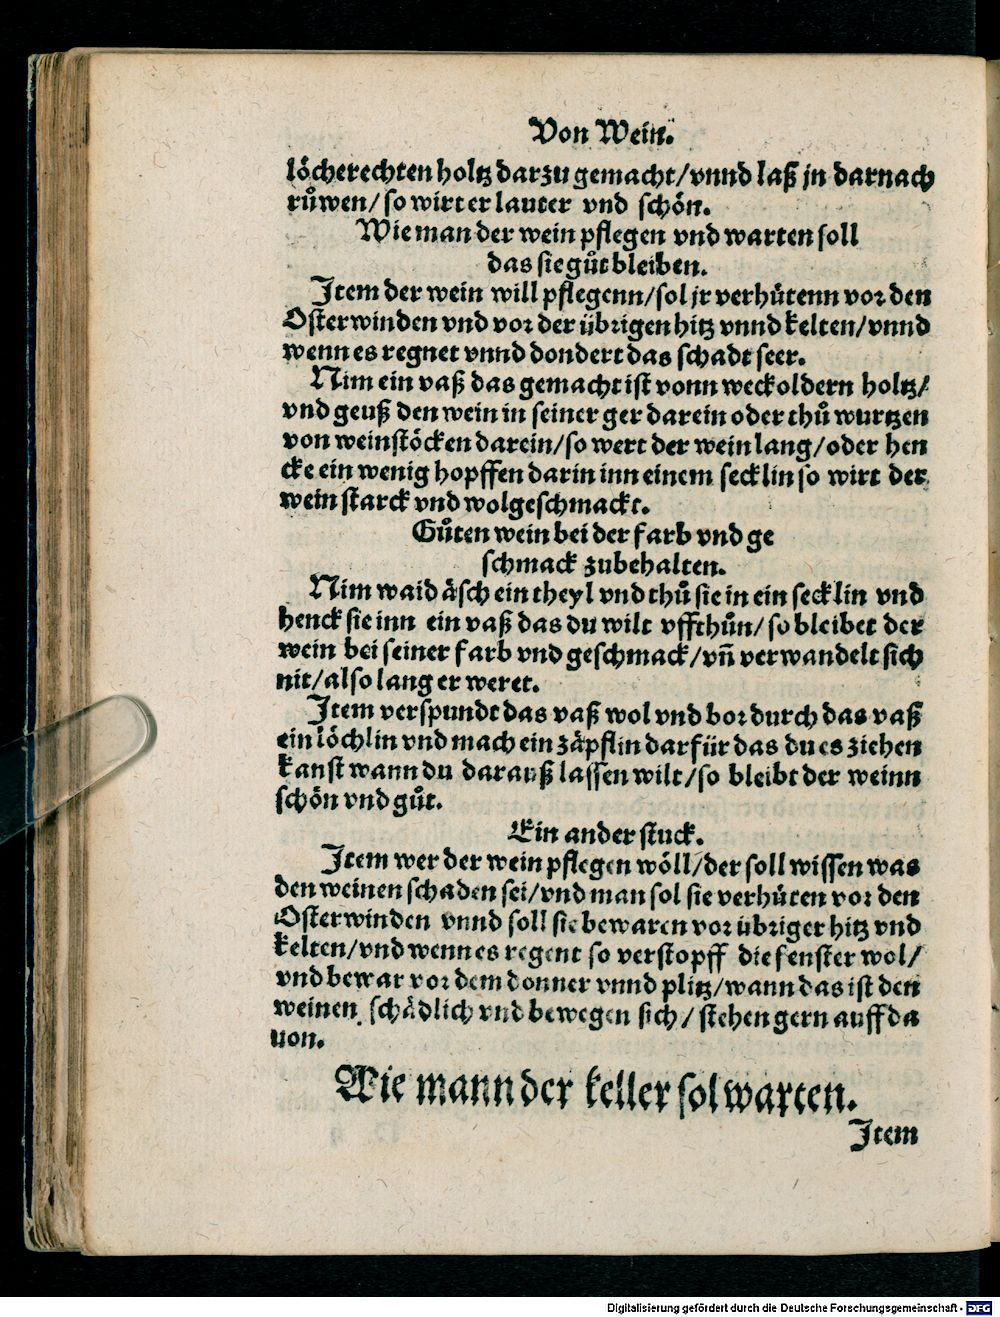 Von Wein.
löcherechten holtz darzu gemacht/vnnd laß jn darnach
růwen/so wirt er lauter vnd schön.
Wie man der wein pflegen vnd warten soll
das sie gůt bleiben.
Item der wein will pflegenn/sol jr verhůtenn vor den
Osterwinden vnd vor der übrigen hitz vnnd kelten/vnnd
wenn es regnet vnnd dondert das schadt seer.
Nim ein vaß das gemacht ist vonn weckoldern holtz/
vnd geuß den wein in seiner ger darein oder thů wurtzen
von weinstöcken darein/so wert der wein lang/oder hen
cke ein wenig hopffen darin inn einem secklin so wirt der
wein starck vnd wolgeschmackt.
Gůten wein bei der farb vnd ge
schmack zubehalten.
Nim waid äsch ein theyl vnd thů sie in ein secklin vnd
henck sie inn ein vaß das du wilt vffthůn/so bleibet der
wein bei seiner farb vnd geschmack/vñ verwandelt sich
nit/also lang er weret.
Item verspundt das vaß wol vnd bor durch das vaß
ein löchlin vnd mach ein zäpflin darfür das du es ziehen
kanst wann du darauß lassen wilt/so bleibt der weinn
schön vnd gůt.
Ein ander stuck.
Item wer der wein pflegen wöll/der soll wissen was
den weinen schaden sei/vnd man sol sie verhůten vor den
Osterwinden vnnd soll sie bewaren vor übriger hitz vnd
kelten/vnd wenn es regent so verstopff die fenster wol/
vnd bewar vor dem donner vnnd plitz/wann das ist den
weinen schädlich vnd bewegen sich/stehen gern auff da
uon.
Wie mann der keller sol warten.
Item
Digitalisierung gefördert durch die Deutsche Forschungsgemeinschaft - DFG